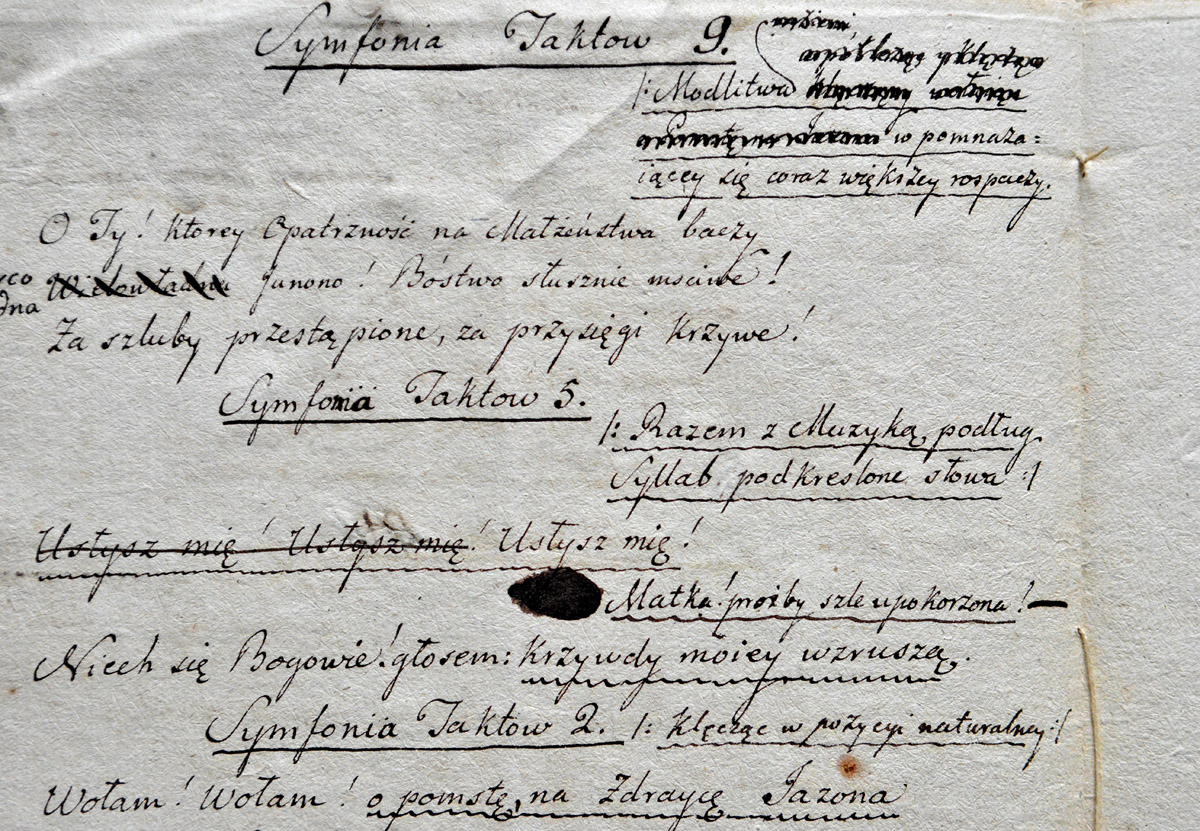 Symfonia Taktow 9.
/: Modlitwa
w pomnaża=
iącey się coraz większey rospaczy.
O Ty! ktorey Opatrzność na Małżeństwa baczy
Wielowładna Junono! Bóstwo słusznie msciwe!
Za szluby przestąpione, za przysięgi krzywe!
Symfonia Taktow 5.
/: Razem z Muzyką podług
Syllab podkreslone słowa :/
Usłysz mię! Usłysz mię! Usłysz mię!
Matka! prożby szle upokorzona! —
Niech się Bogowie! głosem: krzywdy moiey wzruszą.
Symfonia Taktow 2. /: klęcząc w pozycyi naturalney :/
Wołam! Wołam! o pomstę, na Zdraycę Jazona